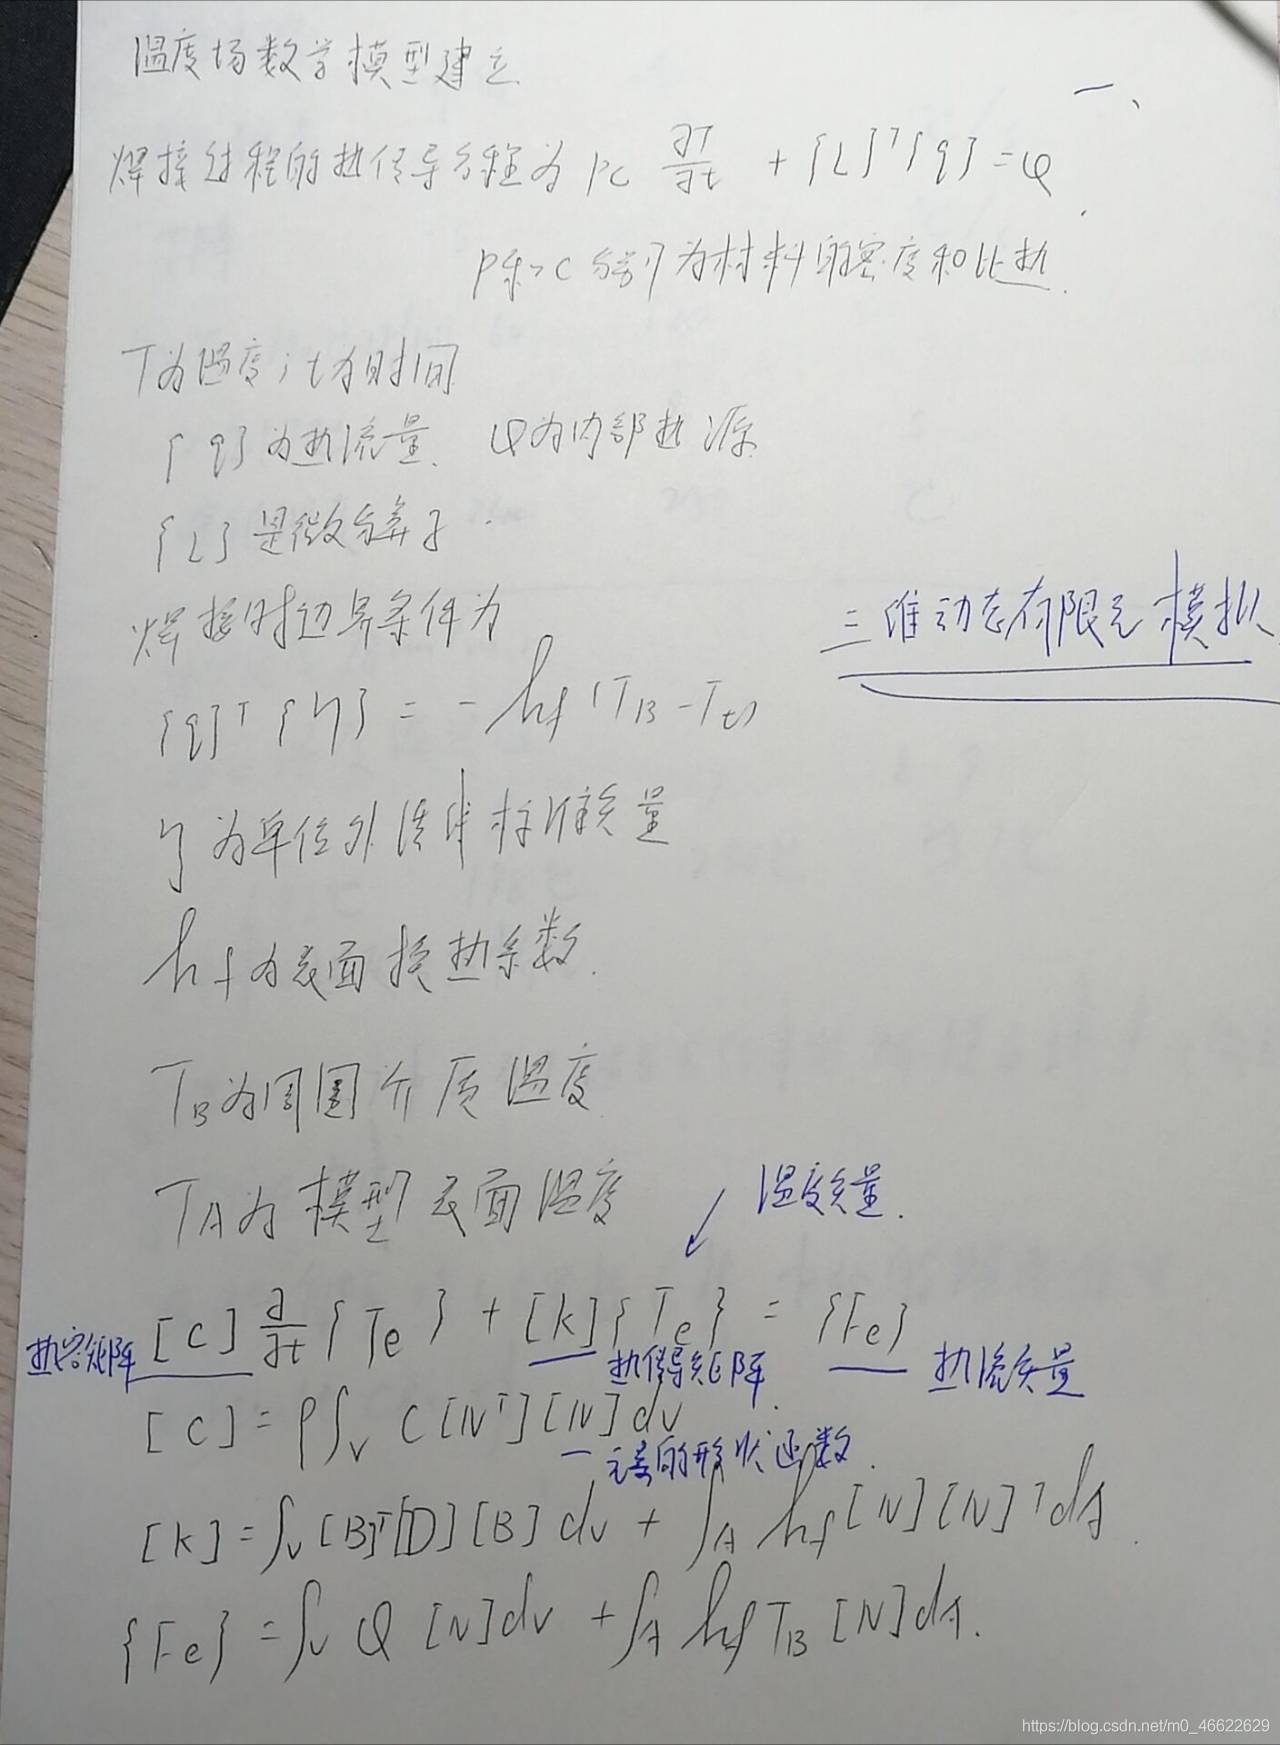 温度场数学模型建立
一、
焊接过程的热传导方程为 ρc ∂T/∂t + {L}ᵀ{q} = φ
ρ和c分别为材料的密度和比热.
T为温度；t为时间
{q}为热流量、φ为内部热源
{L}是微分算子
焊接时边界条件为
三维动态有限元模拟
{q}ᵀ{η} = -hf(TB-Tt)
η为单位外法线标准矢量
hf为表面换热系数.
TB为周围介质温度
TA为模型表面温度
温度矢量.
[C] ∂/∂t {Te} + [k]{Te} = {Fe}
热容矩阵 热传导矩阵 热流矢量
[C] = ρ∫v C[Nᵀ][N]dv
一元素的形状函数.
[K] = ∫v [B]ᵀ[D][B]dv + ∫A hf[N][N]ᵀdA.
{Fe} = ∫v Q[N]dv + ∫A hfTB[N]dA.
https://blog.csdn.net/m0_46622629